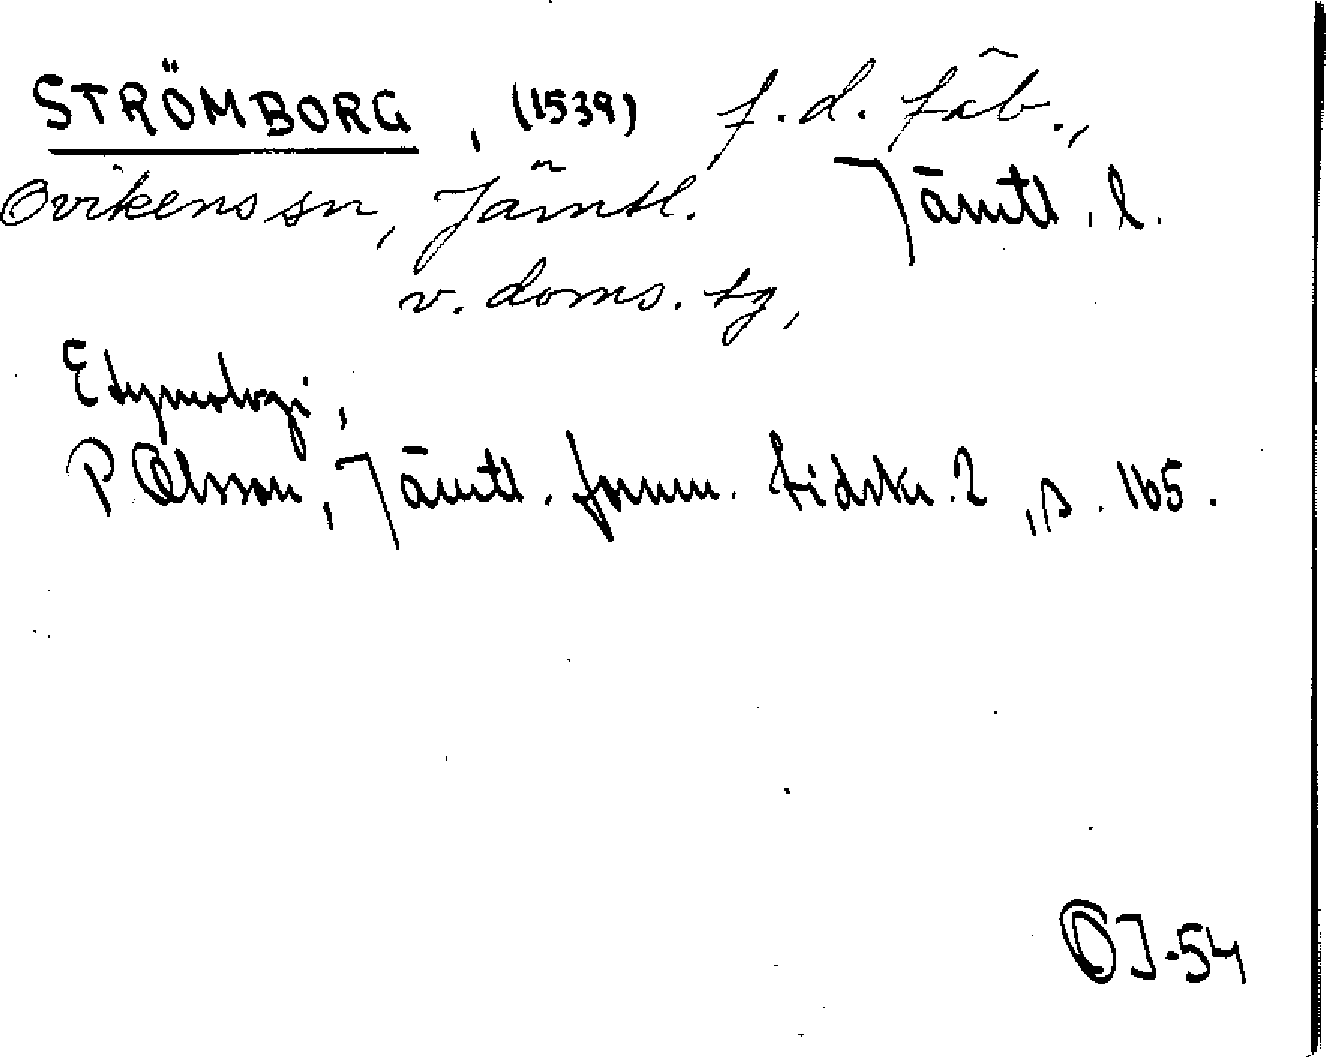 STRÖMBORG, (1539) f.d. fäb.,
Ovikens sn, Jämtl. Jämtl. l.
v. doms. tg,
Etymologi,
P Olsson, Jämtl. fornm. tidskr. 2, s. 165.
OJ-54